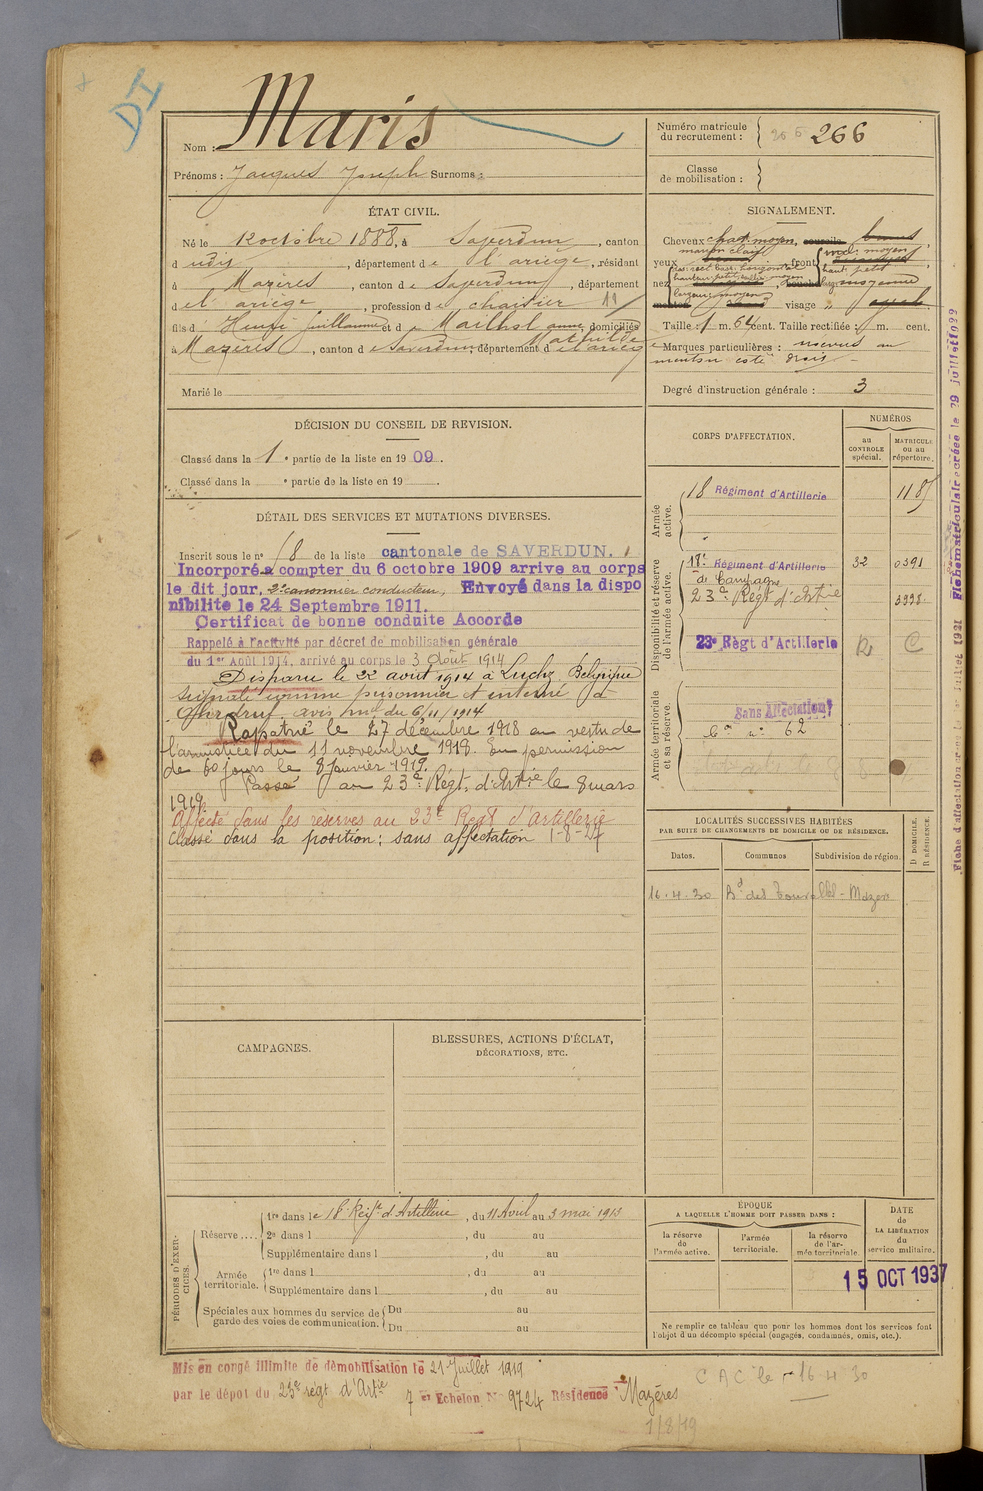 DI
Nom : Maris
Prénoms : Jacques Joseph Surnoms :
Numéro matricule
du recrutement : 266
Classe
de mobilisation :
ÉTAT CIVIL.
Né le 12 octobre 1888, à Saverdun, canton
d udit, département de l'ariège, résidant
à Mazères, canton de Saverdun, département
de l'ariège, profession de 11
fils d' Henri Guillaume et de Mailhol anne domiciliés
Mathilde
à Mazères, canton de Saverdun, département de l'ariège
Marié le
SIGNALEMENT.
Cheveux chat. moyen, sourcils bruns,
marron clair
yeux front
nez bouche moyenne
menton visage ovale
Taille : 1 m. 64 cent. Taille rectifiée : m. cent.
Marques particulières : noevus au
menton coté droit
Degré d'instruction générale : 3
DÉCISION DU CONSEIL DE REVISION.
Classé dans la 1e partie de la liste en 1909.
Classé dans la e partie de la liste en 19 .
DÉTAIL DES SERVICES ET MUTATIONS DIVERSES.
Inscrit sous le n° 18 de la liste cantonale de SAVERDUN.
Incorporé a compter du 6 octobre 1909 arrive au corps
le dit jour, 2e canonnier conducteur, Envoyé dans la dispo
nibilite le 24 Septembre 1911.
Certificat de bonne conduite Accorde
Rappelé à l'activité par décret de mobilisation générale
du 1er Août 1914, arrivé au corps le 3 Août 1914
Disparu le 22 août 1914 à Luchy Belgique
signalé comme prisonnier et interné à
Ohrdruf avis mel du 6/11/1914
Rapatrié le 27 décembre 1918 en vertu de
l'armistice du 11 novembre 1918. En permission
de 60 jours le 8 Janvier 1919.
Passé au 23e Régt. d'Artie le 8 mars
1919
Affecté dans les réserves au 23e Regt d'Artillerie
Classé dans la position : sans affectation 1-8-24
CORPS D'AFFECTATION.
NUMÉROS
au
CONTROLE
spécial.
MATRICULE
ou au
répertoire.
Armée
active.
18 Régiment d'Artillerie 1185
Disponibilité et réserve
de l'armée active.
18e Régiment d'Artillerie 32 0391
de Campagne
23e Régt d'Artie 3998
23e Règt d'Artillerie R C
Armée territoriale
et sa réserve.
Sans Affectation
62
LOCALITÉS SUCCESSIVES HABITÉES
PAR SUITE DE CHANGEMENTS DE DOMICILE OU DE RÉSIDENCE.
Dates.
Communes
Subdivision de région.
D DOMICILE.
R RÉSIDENCE.
16.4.30 Bd des Tourelles - Mazères
CAMPAGNES.
BLESSURES, ACTIONS D'ÉCLAT,
DÉCORATIONS, ETC.
PÉRIODES D'EXERCICES.
Réserve ....
1re dans le 18e Regt d'Artillerie, du 11 Avril au 3 mai 1913
2e dans l , du au
Supplémentaire dans l , du au
Armée
territoriale.
1re dans l , du au
Supplémentaire dans l , du au
Spéciales aux hommes du service de
garde des voies de communication.
Du au
Du au
ÉPOQUE
A LAQUELLE L'HOMME DOIT PASSER DANS :
la réserve
de
l'armée active.
l'armée
territoriale.
la réserve
de l'ar-
mée territoriale.
DATE
de
LA LIBÉRATION
du
service militaire.
15 OCT 1937
Ne remplir ce tableau que pour les hommes dont les services font
l'objet d'un décompte spécial (engagés, condamnés, omis, etc.).
Mis en congé illimité de démobilisation le 21 Juillet 1919
par le dépot du 23e régt d'Artie 7e Echelon N° 9724 Résidence Mazères
C A C le 16 4 30
1/8/19